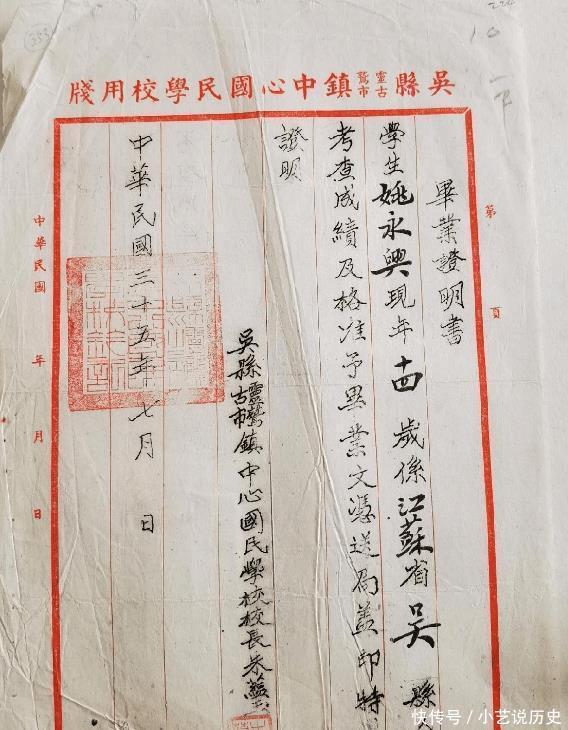 吳縣靈鷲古市鎮中心國民學校用牋
第 頁
畢業證明書
學生姚永興現年十四歲係江蘇省吳縣
考查成績及格准予畢業文憑送局蓋印特
證明
吳縣靈鷲古市鎮中心國民學校校長朱
中華民國三十五年七月 日
中華民國 年 月 日
快传号/小艺说历史